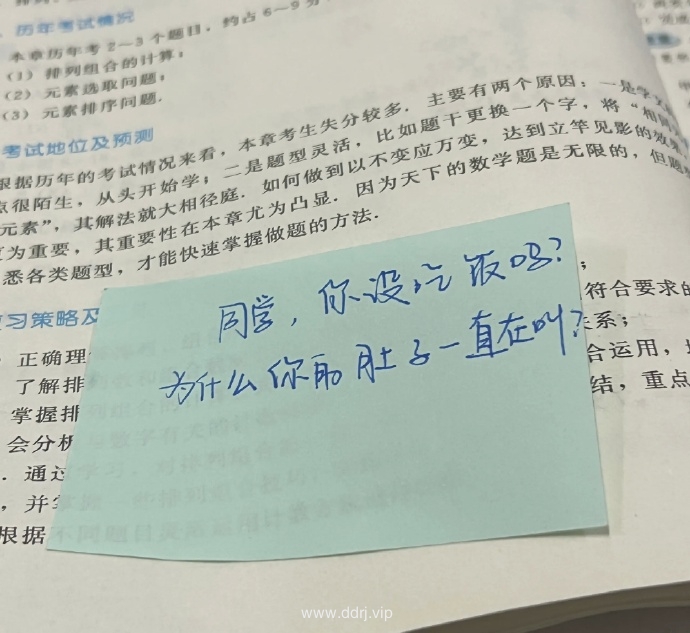 历年考试情况
本章历年考2—3个题目,约占6—9分
(1)排列组合的计算;
(2)元素选取问题;
(3)元素排序问题.
考试地位及预测
根据历年的考试情况来看,本章考生失分较多.主要有两个原因:一是学文
点很陌生,从头开始学;二是题型灵活,比如题干更换一个字,将“相同
元素”,其解法就大相径庭.如何做到以不变应万变,达到立竿见影的效果
为重要,其重要性在本章尤为凸显.因为天下的数学题是无限的,但题型
悉各类题型,才能快速掌握做题的方法.
习策略及
正确理
了解排
掌握排
会分析
.通过
,并
根据
同学,你没吃饭吗?
为什么你的肚子一直在叫?
;
符合要求的
关系;
合运用,
结,重点
www.ddrj.vip